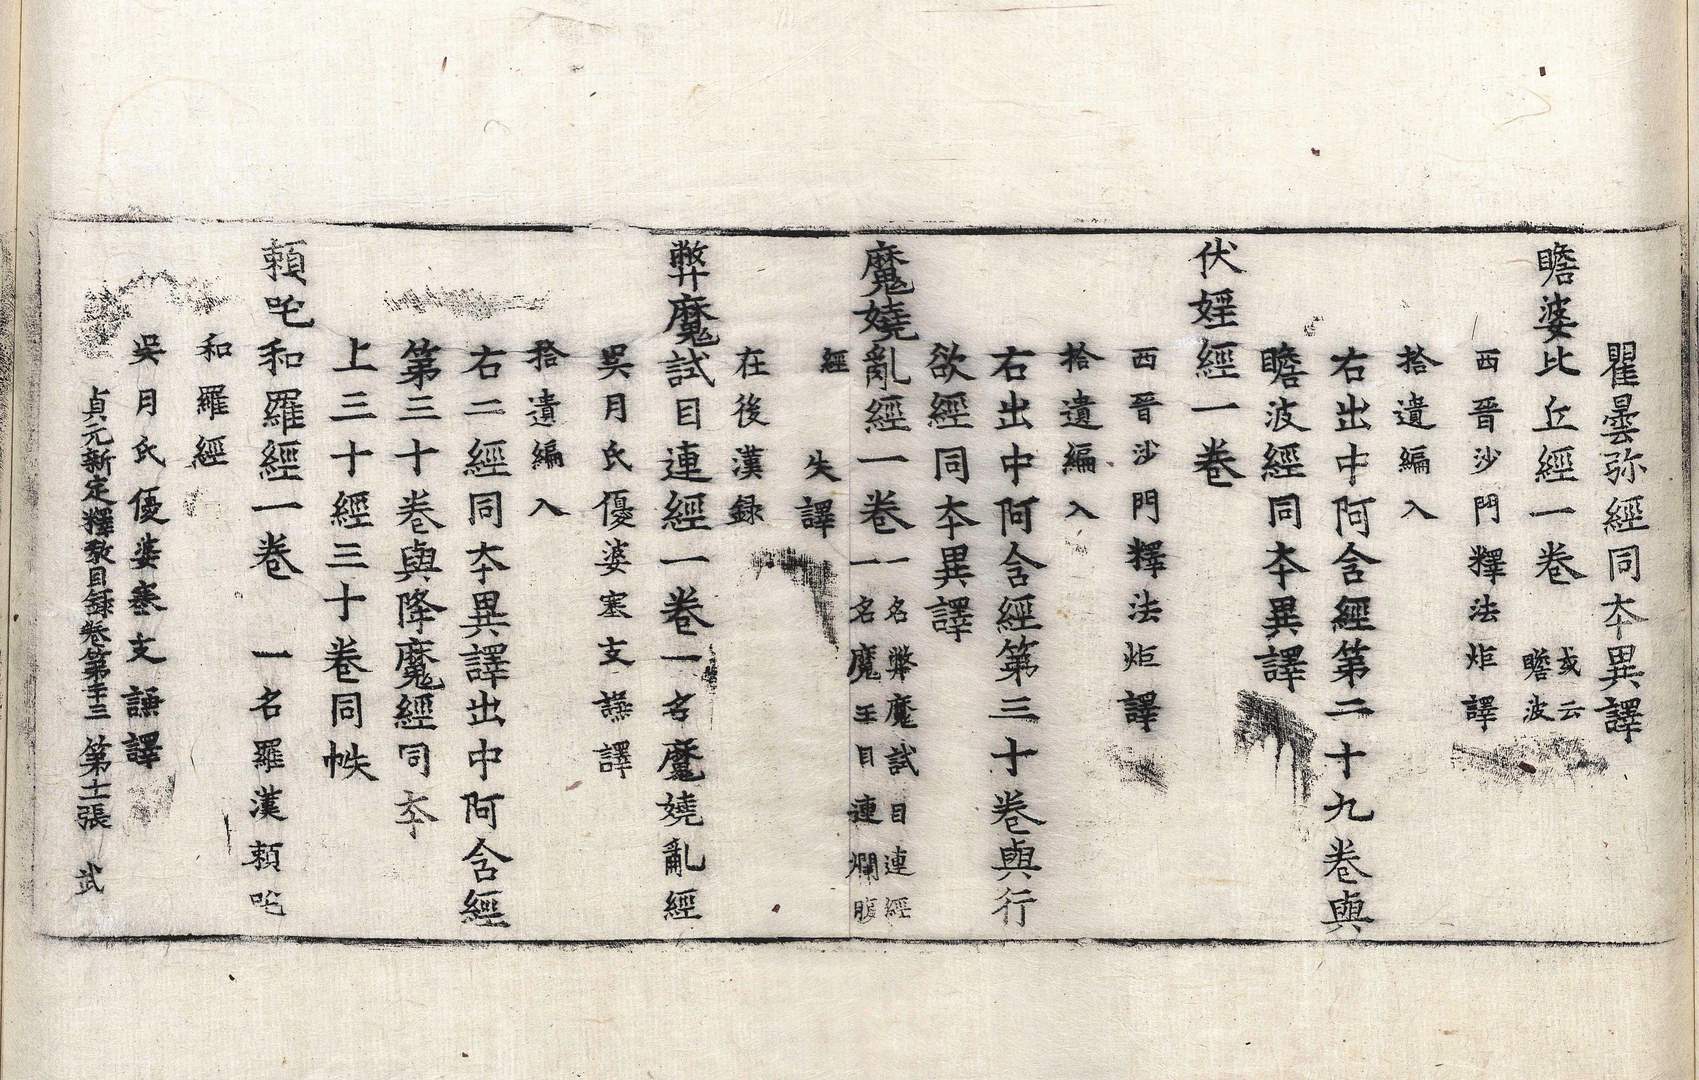 瞿曇弥經同夲異譯
瞻婆比丘經一卷 或云瞻波
西晉沙門釋法炬譯
拾遺編入
右出中阿含經第二十九卷與
瞻波經同夲異譯
伏婬經一卷
西晉沙門釋法炬譯
拾遺編入
右出中阿含經第三十卷與行
欲經同夲異譯
魔嬈亂經一卷 一名弊魔試目連經一名魔王目連爛腹
經 失譯
在後漢録
弊魔試目連經一卷一名魔嬈亂經
吳月氏優婆塞支謙譯
拾遺編入
右二經同夲異譯出中阿含經
第三十卷與降魔經同夲
上三十經三十卷同帙
頼吒和羅經一卷 一名羅漢頼吒
和羅經
吳月氏優婆塞支謙譯
貞元新定釋教目録卷第二十三 第十二張 武